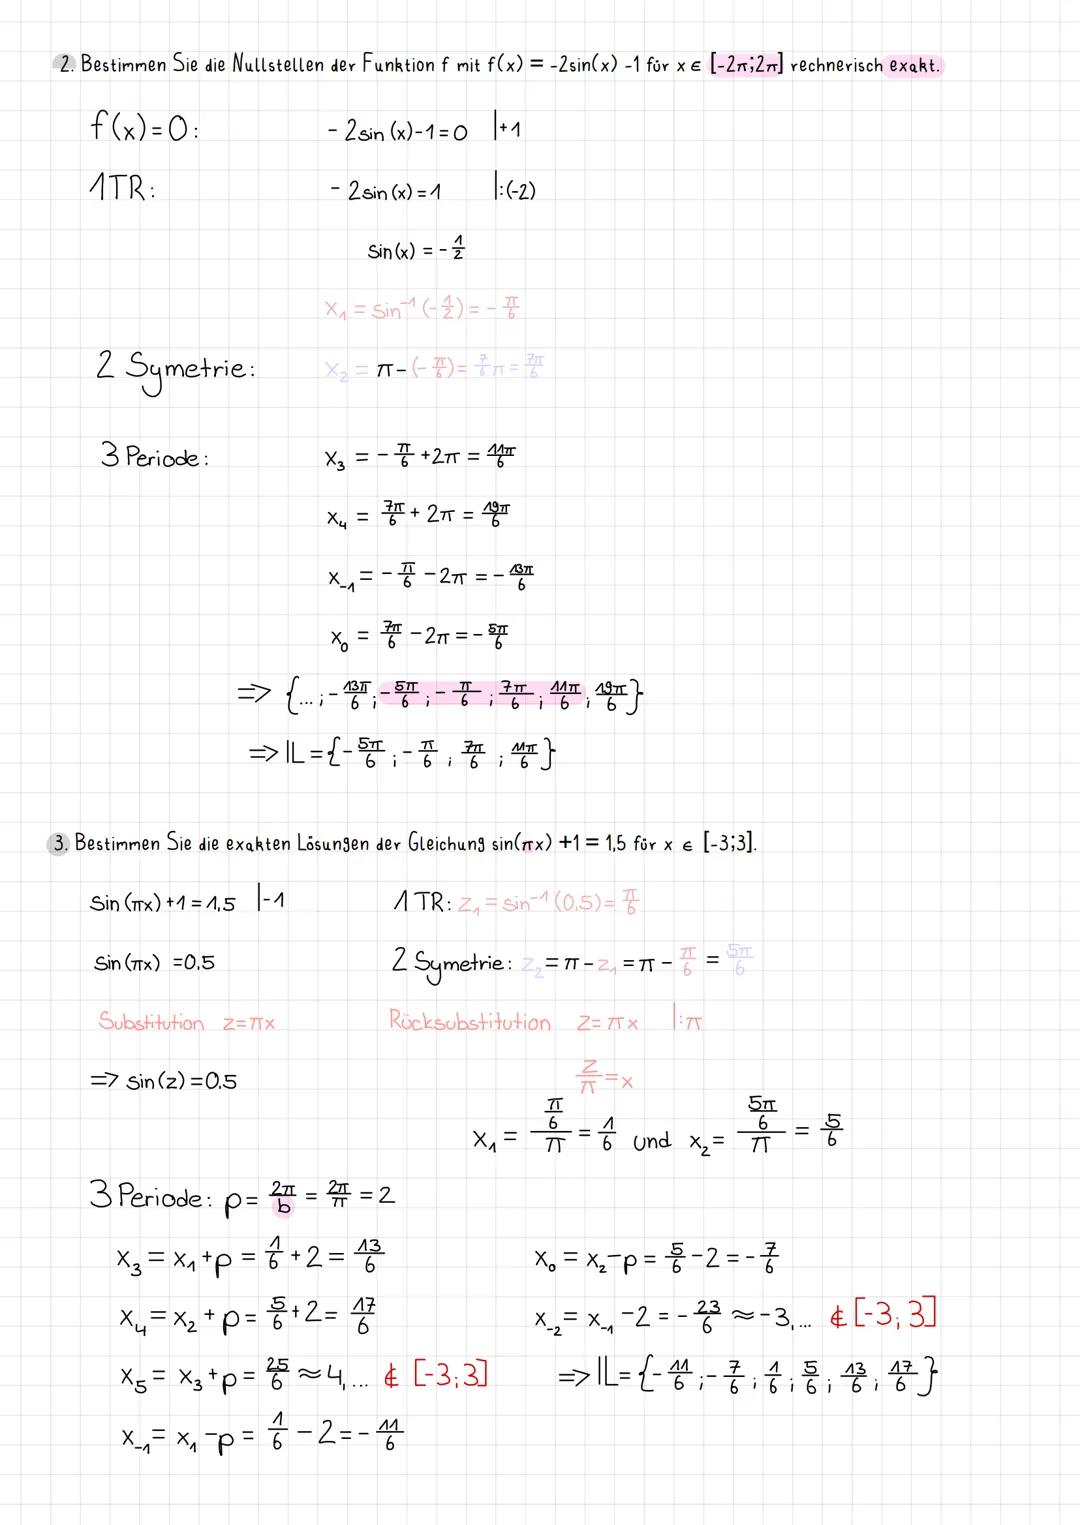 2. Bestimmen Sie die Nullstellen der Funktion f mit f(x) = -2sin(x) -1 für x ∈ [-2π;2π] rechnerisch exakt.
f(x)=0: -2sin(x)-1=0 |+1
1TR: -2sin(x)=1 |:(-2)
sin(x) = -1/2
x₁ = sin⁻¹(-1/2) = -π/6
2 Symetrie: x₂ = π-(-π/6) = 7/6 π = 7π/6
3 Periode: x₃ = -π/6 +2π = 11π/6
x₄ = 7π/6 + 2π = 19π/6
x₋₁ = -π/6 -2π = -13π/6
x₀ = 7π/6 -2π = -5π/6
=> {...; -13π/6; -5π/6; -π/6; 7π/6; 11π/6; 19π/6}
=> 𝕃 = {-5π/6; -π/6; 7π/6; 11π/6}
3. Bestimmen Sie die exakten Lösungen der Gleichung sin(πx) +1 = 1,5 für x ∈ [-3;3].
Sin(πx)+1=1,5 |-1 1 TR: z₁ = sin⁻¹(0,5) = π/6
Sin(πx) =0,5 2 Symetrie: z₂ = π-z₁ = π-π/6 = 5π/6
Substitution z=πx Rücksubstitution z=πx |:π
=> sin(z)=0,5 z/π = x
x₁ = (π/6)/π = 1/6 und x₂ = (5π/6)/π = 5/6
3 Periode: p = 2π/b = 2π/π = 2
x₃ = x₁+p = 1/6+2 = 13/6 x₀ = x₂-p = 5/6-2 = -7/6
x₄ = x₂+p = 5/6+2 = 17/6 x₋₂ = x₋₁-2 = -23/6 ≈ -3,... ∉ [-3;3]
x₅ = x₃+p = 25/6 ≈ 4,... ∉ [-3;3] => 𝕃 = {-11/6; -7/6; 1/6; 5/6; 13/6; 17/6}
x₋₁ = x₁-p = 1/6-2 = -11/6